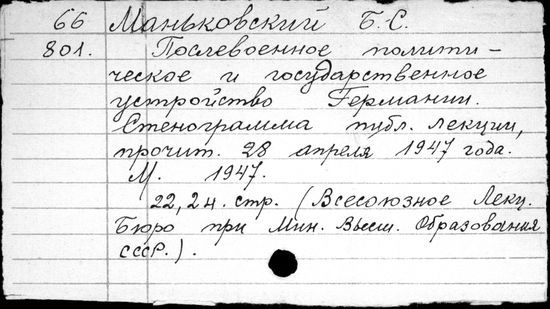 66 Маньковский Б.С.
801. Послевоенное полити-
ческое и государственное
устройство Германии.
Стенограмма публ. лекции,
прочит. 28 апреля 1947 года.
М. 1947.
22, 24. стр. (Всесоюзное Лекц.
Бюро при Мин. Высш. Образования
СССР.).